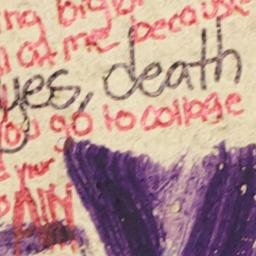 ing
at me because
yes, death
you go to collage
your
PAIN